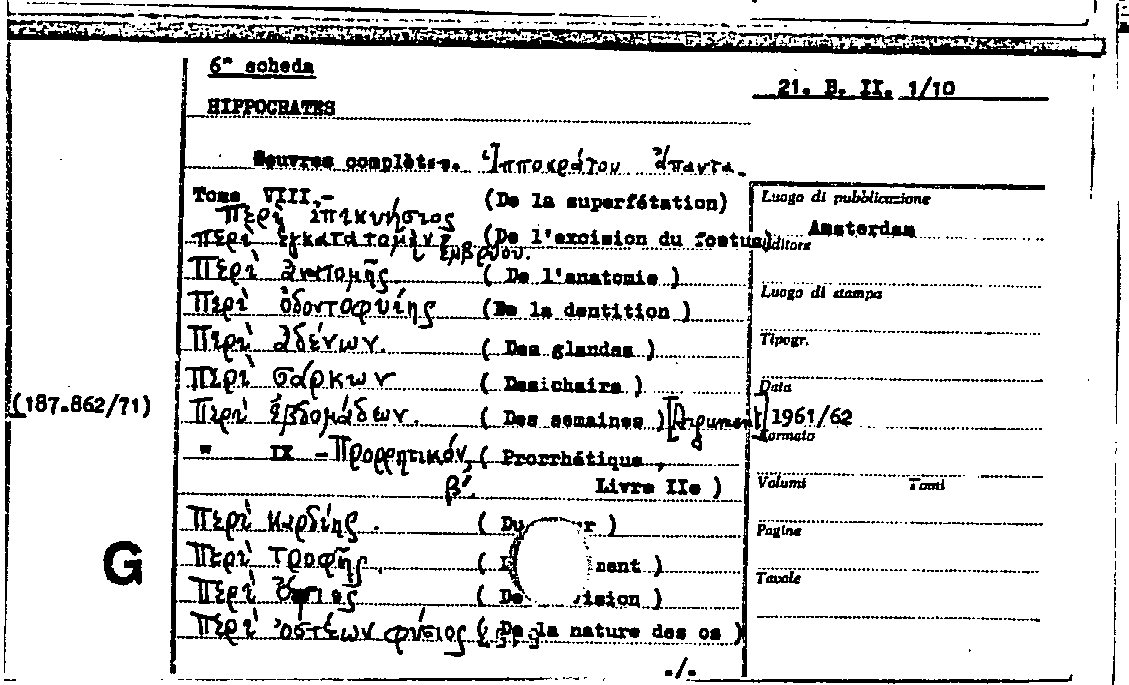 6ª scheda
21. B. II. 1/10
HIPPOCRATES
Oeuvres complètes. Ἱπποκράτου ἅπαντα.
Tome VIII.- (De la superfétation)
Περὶ ἐπικυήσιος
Περὶ ἐγκατατομῆς ἐμβρύου. (De l'excision du foetus)
Περὶ ἀνατομῆς. ( De l'anatomie )
Περὶ ὀδοντοφυΐης (De la dentition )
Περὶ ἀδένων. ( Des glandes )
Περὶ σαρκῶν ( Des chairs )
(187.862/71)
Περὶ ἑβδομάδων. ( Des semaines ) [Argument]
" IX - Προρρητικόν, ( Prorrhétique ,
β'. Livre IIe )
Περὶ καρδίης . ( Du )
G
Περὶ τροφῆς. ( )
Περὶ ὄψιος ( De )
Περὶ ὀστέων φύσιος ( De la nature des os )
-/-
Luogo di pubblicazione
Amsterdam
Editore
Luogo di stampa
Tipogr.
Data
1961/62
Formato
Volumi Tomi
Pagine
Tavole